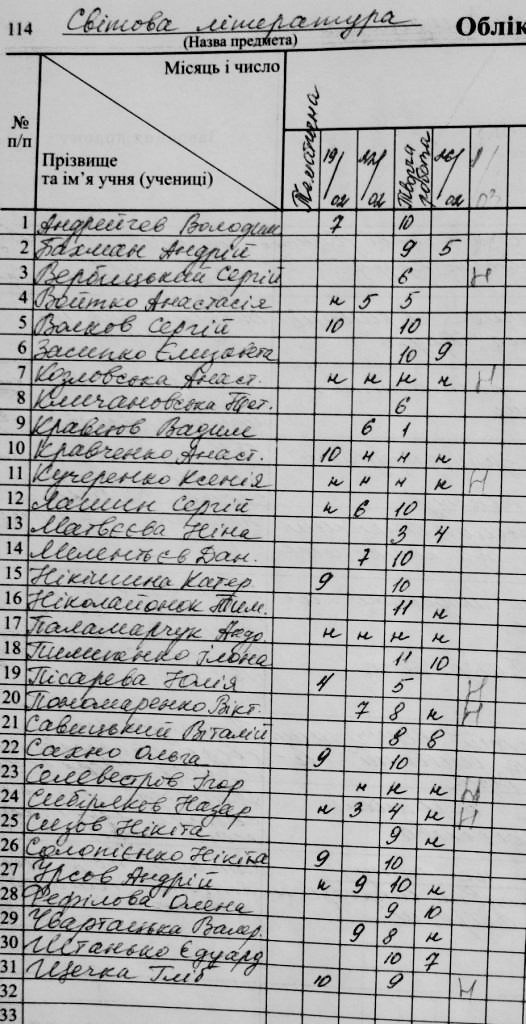 114 Світова література Облік
(Назва предмета)
Місяць і число
№ п/п
Прізвище та ім'я учня (учениці)
19/02 22/02 Творча робота 26/02 1/03
1 Андрейчев Володим 7 10
2 Бахман Андрій 9 5
3 Вербицький Сергій 6 н
4 Войтко Анастасія н 5 5
5 Волков Сергій 10 10
6 10 9
7 Козловська Анаст. н н н н н
8 6
9 Вадим 6 1
10 Кравченко Анаст. 10 н н н
11 Кучеренко Ксенія н н н н н
12 Лашин Сергій н 6 10
13 Матвєєва Ніна 3 4
14 Мелентьєв Дан. 7 10
15 Нікішина Катер. 9 10
16 Ніколайонок Тим. 11 н
17 Паламарчук н н н н
18 Ілона 11 10
19 Пісарева Юлія 4 5 н
20 Пономаренко Вікт. 7 8 н н
21 Савицький Віталій 8 8
22 Сахно Ольга 9 10
23 Ігор н н н н
24 Сибіряков Назар н 3 4 н н
25 Сизов Нікіта 9 н
26 Солопієнко Нікіта 9 10
27 Урсов Андрій н 9 10 н
28 Олена 9 10
29 Чвартацька Валер. 9 8 н
30 Штанько Едуард 10 7
31 Щечка Гліб 10 9 н
32
33